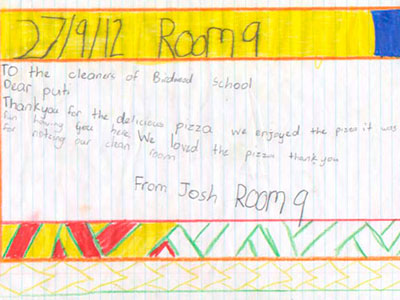 27/9/12 Room 9
To the cleaners of Birdwood School
Dear puti
Thankyou for the delicious pizza we enjoyed the pizza it was
fun having you here. We loved the pizza thankyou
for noticing our clean room
From Josh Room 9